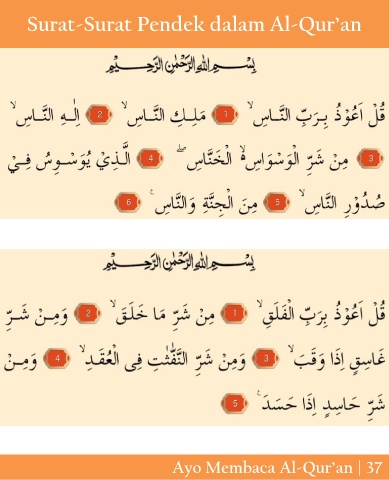 Surat-Surat Pendek dalam Al-Qur'an
بِسْــمِ اللهِ الرَّحْمٰنِ الرَّحِـيْـــمِ
قُلْ اَعُوْذُ بِـرَبِّ النَّـاسِۙ 1 مَلِـكِ النَّـاسِۙ 2 اِلٰـهِ النَّـاسِۙ
3 مِنْ شَرِّ الْوَسْوَاسِ ەۙ الْخَنَّاسِۖ 4 الَّـذِيْ يُوَسْـوِسُ فِـيْ
صُدُوْرِ النَّاسِۙ 5 مِنَ الْجِنَّةِ وَالنَّاسِ ࣖ 6
بِسْــمِ اللهِ الرَّحْمٰنِ الرَّحِـيْـــمِ
قُلْ اَعُوْذُ بِرَبِّ الْفَلَقِۙ 1 مِنْ شَرِّ مَا خَلَقَۙ 2 وَمِـنْ شَـرِّ
غَاسِقٍ اِذَا وَقَبَۙ 3 وَمِنْ شَرِّ النَّفّٰثٰتِ فِى الْعُقَـدِۙ 4 وَمِـنْ
شَرِّ حَاسِدٍ اِذَا حَسَدَ ࣖ 5
Ayo Membaca Al-Qur'an | 37